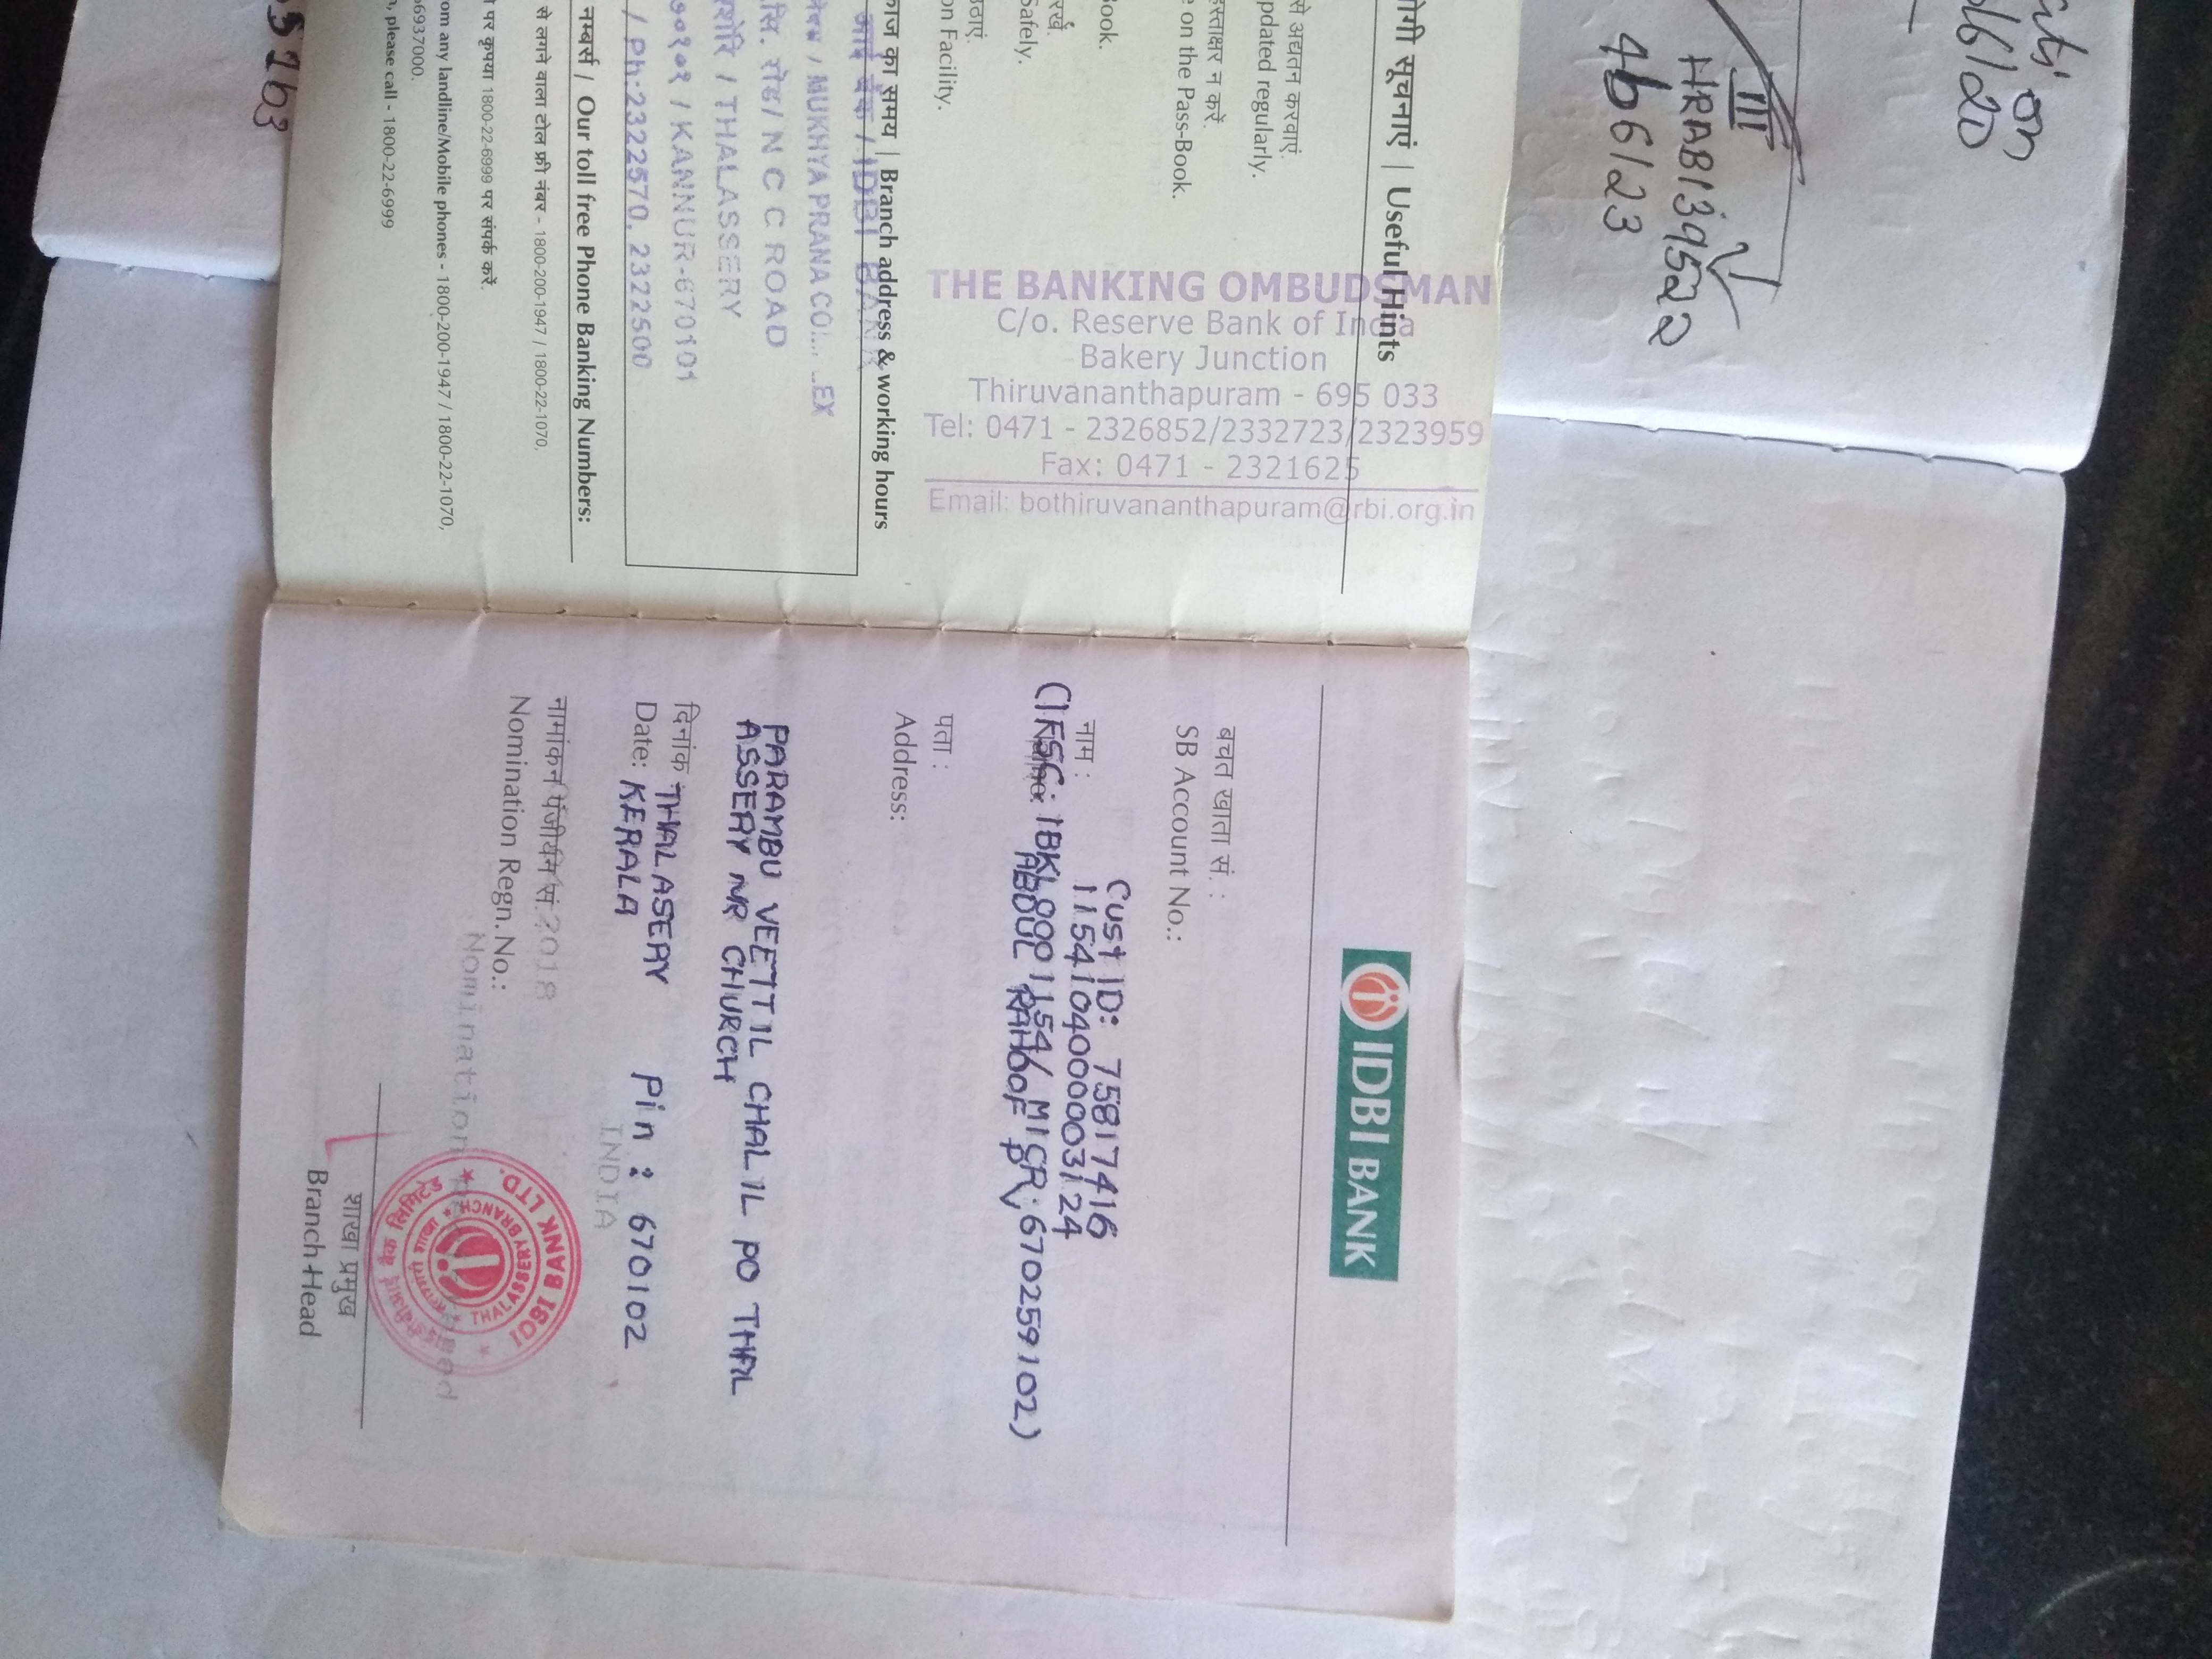 cuts on
d/6/20
III
HRAB139522
4b6123
5763
ोगी सूचनाएं | Useful Hints
से अद्यतन करवाएं.
pdated regularly.
हस्ताक्षर न करें.
e on the Pass-Book.
Book.
रखें.
Safely.
उठाएं.
on Facility.
THE BANKING OMBUDSMAN
C/o. Reserve Bank of India
Bakery Junction
Thiruvananthapuram - 695 033
Tel: 0471 - 2326852/2332723/2323959
Fax: 0471 - 2321625
Email: bothiruvananthapuram@rbi.org.in
काज का समय | Branch address & working hours
आई बैंक / IDBI BANK
MUKHYA PRANA EX
सि. रोड / N C C ROAD
THALASSERY
KANNUR-670101
/ Ph:2322570, 2322500
नम्बर्स / Our toll free Phone Banking Numbers:
से लगने वाला टोल फ्री नंबर - 1800-200-1947 / 1800-22-1070,
पर कृपया 1800-22-6999 पर संपर्क करें.
om any landline/Mobile phones - 1800-200-1947 / 1800-22-1070,
6937000.
, please call - 1800-22-6999
IDBI BANK
बचत खाता सं. :
SB Account No.:
Cust ID: 75817416
1154104000003124
नाम :
(IFSC: IBKL0001154/ MICR: 670259102)
ABDUL RAHOOF PV
पता :
Address:
PARAMBU VEETTIL CHALIL PO THAL
ASSERY NR CHURCH
दिनांक THALASERY
Date: KERALA Pin : 670102
INDIA
नामांकन पंजीयन सं. 2018
Nomination Regn. No.:
Nomination
IDBI BANK LTD.
THALASSERY BRANCH
बैंक लिमिटेड
शाखा प्रमुख
Branch Head